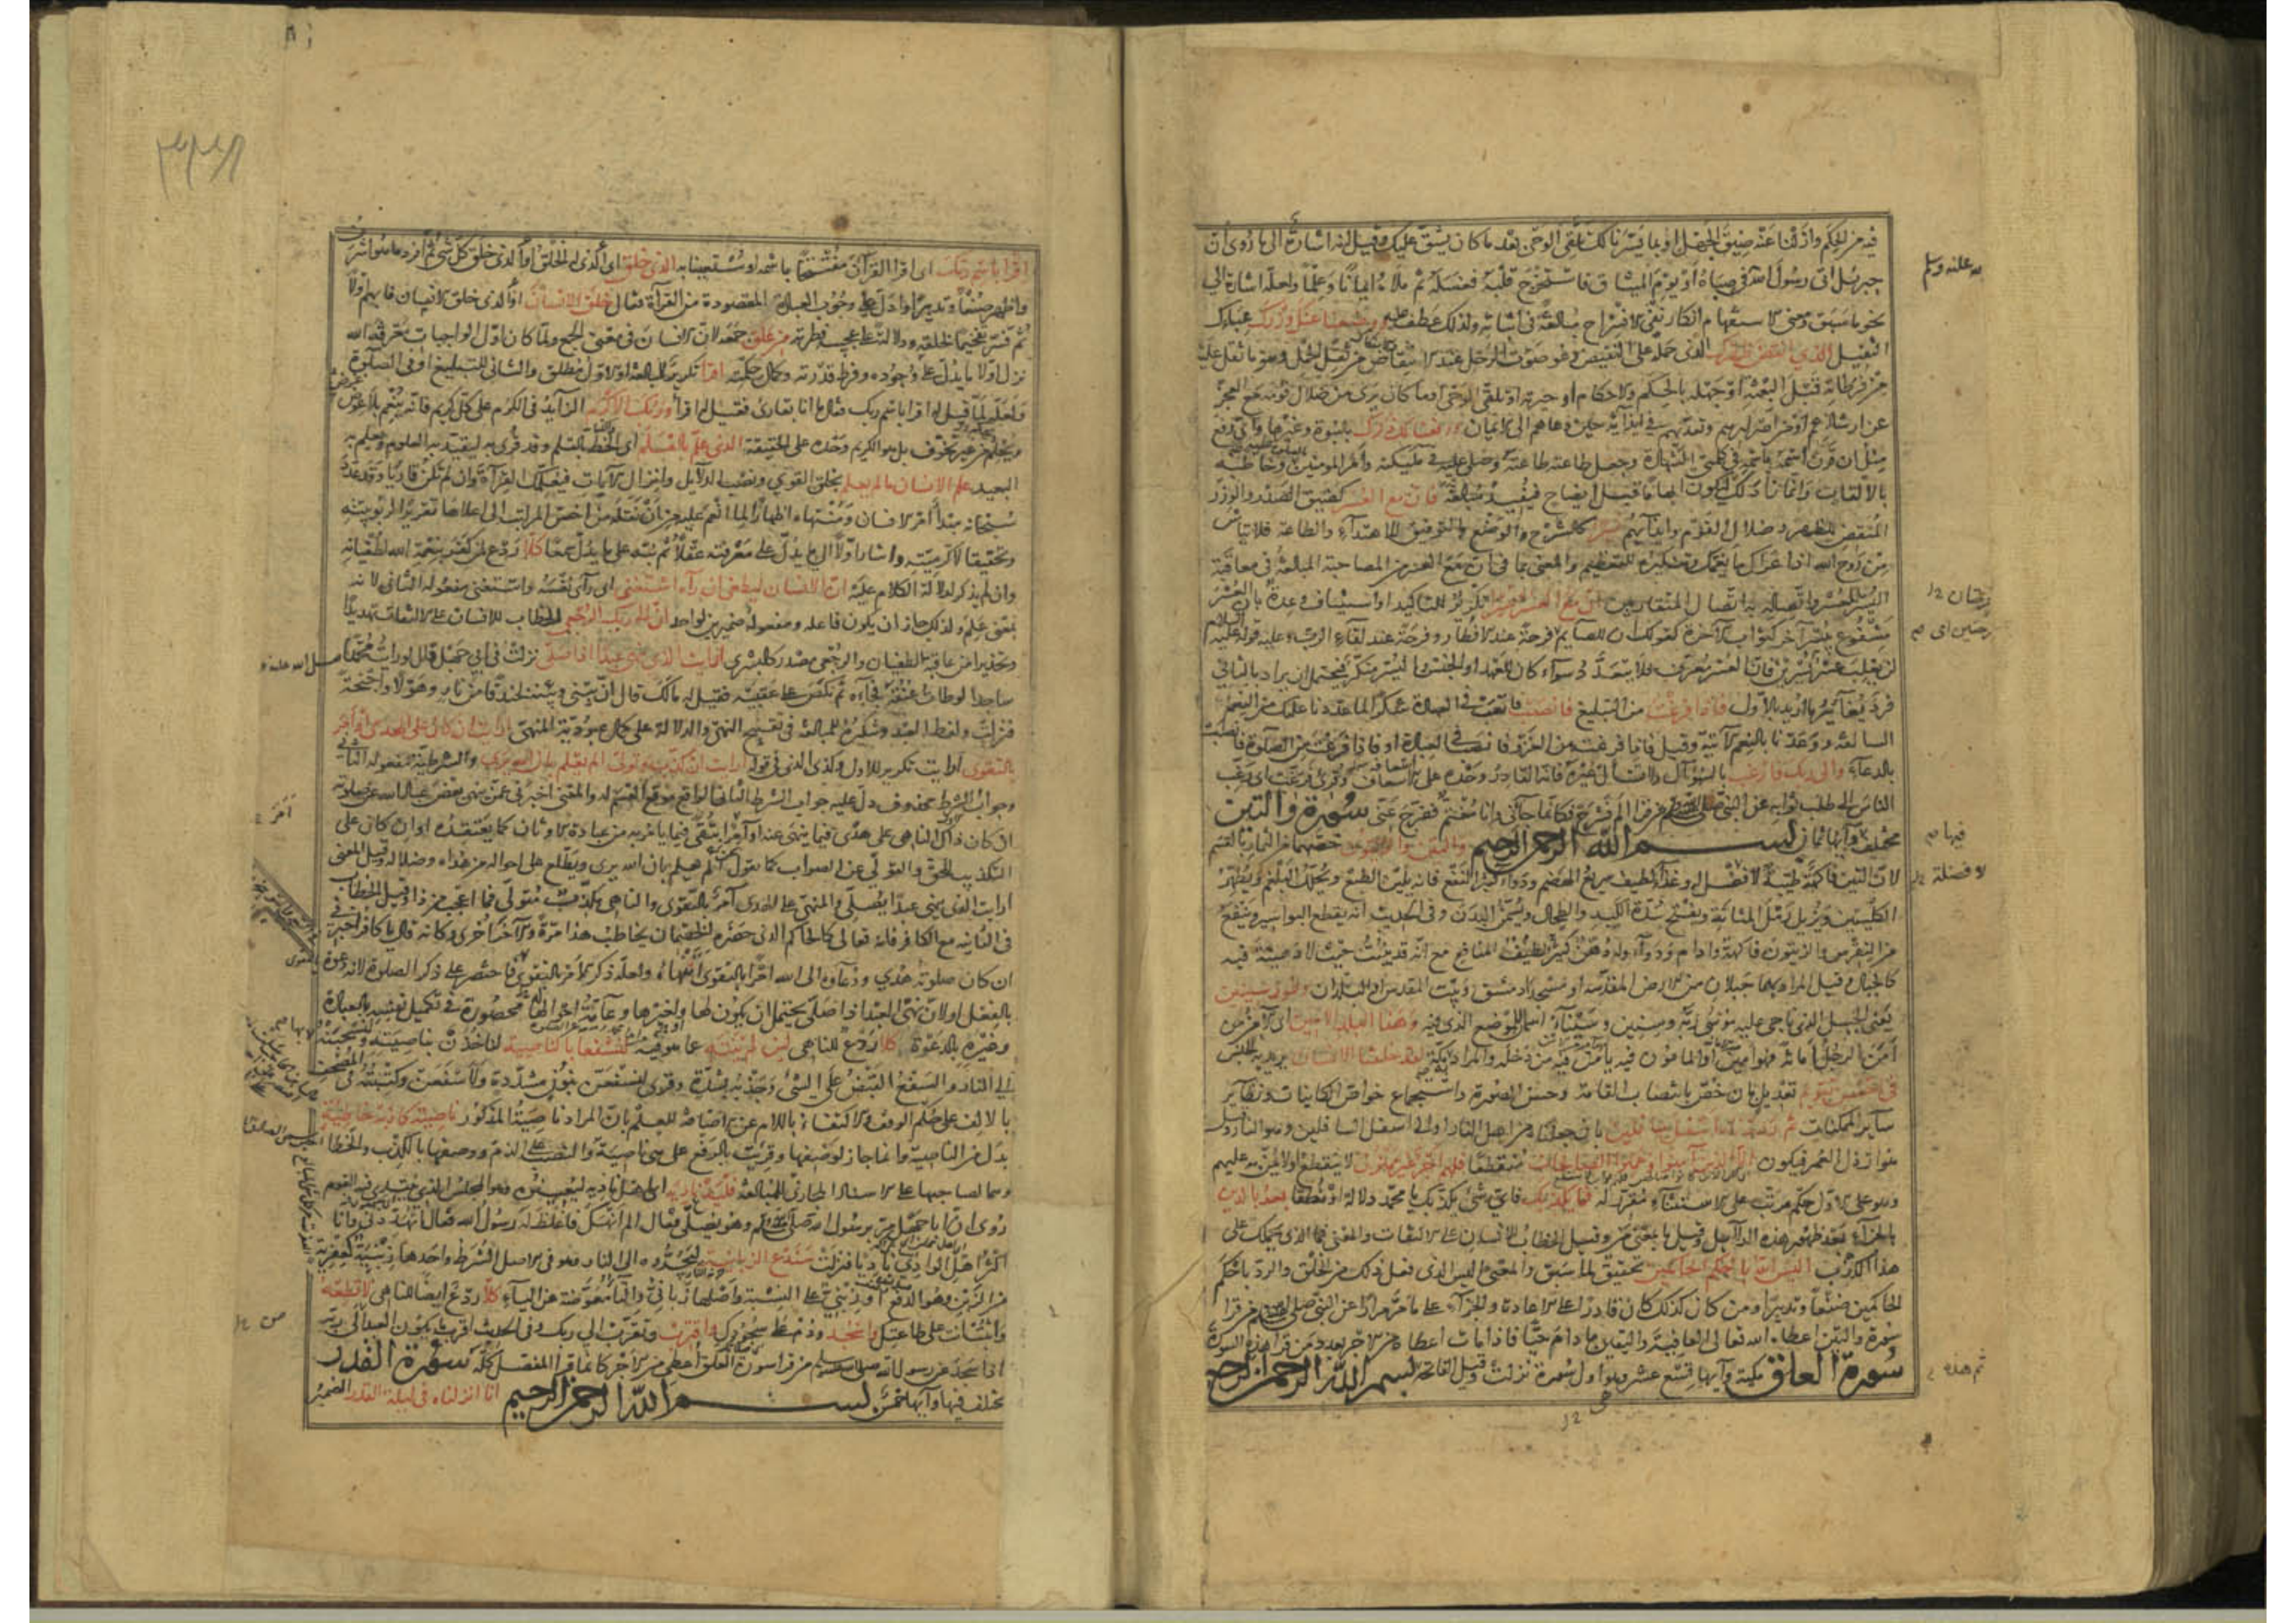 فيه من الحكم وازلنا عنه ضيق الجهل او بما يسرنا لك تلقى الوحى بعد ما كان يشق عليك وقيل انه اشارة الى ما روى ان
جبريل اتى رسول الله فى صباه او يوم الميثاق فاستخرج قلبه فغسله ثم ملأه ايمانا وعلما ولعله اشارة الى
نحو ما سبق ومعنى الاستفهام انكار نفى الانشراح مبالغة فى اثباته ولذلك عطف عليه ووضعنا عنك وزرك عبأك
الثقيل الذى انقض ظهرك الذى حمله على النقيض وهو صوت الرحل عند الانتقاض من ثقل الحمل وهو ما ثقل عليه
من فرطاته قبل البعثة او جهله بالحكم والاحكام او حيرته او تلقى الوحى او ما كان يرى من ضلال قومه مع العجز
عن ارشادهم او من اصرارهم وتعديهم فى ايذائه حين دعاهم الى الايمان ورفعنا لك ذكرك بالنبوة وغيرها واى رفع
مثل ان قرن اسمه باسمه فى كلمتى الشهادة وجعل طاعته طاعته وصلى عليه فى ملئكته وامر المومنين وخاطبه
بالالقاب وانما زاد لك ليكون ابهاما قبل ايضاح فيفيد مبالغة فان مع العسر كضيق الصدر والوزر
المنقض للظهر وضلال القوم وايذائهم يسرا كالشرح والوضع والتوفيق للاهتداء والطاعة فلا تياس
من روح الله اذا عراك ما يغمك وتنكيره للتعظيم والمعنى بما فى ان مع العسر من المصاحبة المبالغة فى معاقبة
اليسر للعسر واتصاله به اتصال المتقاربين ان مع العسر يسرا تكرير للتاكيد او استيناف وعدة بان العسر
مشفوع بيسر آخر كثواب الآخرة كقولك ان للصايم فرحة عند الافطار وفرحة عند لقاء الرب وعليه قوله عليه السلام
لن يغلب عسر يسرين فان العسر معرف فلا يتعدد سواء كان للعهد او الجنس واليسر منكر فيحتمل ان يراد بالثانى
فرد يغاير ما اريد بالاول فاذا فرغت من التبليغ فانصب فاتعب فى العبادة شكرا لما عددنا عليك من النعم
السالفة ووعدنا بالنعم الآتية وقيل فاذا فرغت من الغزو فانصب فى العبادة او فاذا فرغت من الصلوة فانصب
بالدعاء والى ربك فارغب بالسؤال ولا تسأل غيره فانه القادر وحده على اسعافه وقرئ فرغب اى رغب
الناس الى طلب ثوابه عن النبى صلى الله عليه وسلم من قرأ الم نشرح فكانما جاءنى وانا مغتم ففرج عنى سورة والتين
مختلف وآيها ثمان بسم الله الرحمن الرحيم والتين والزيتون خصهما من الثمار بالقسم
لان التين فاكهة طيبة لا فضل له وغذاء لطيف سريع الهضم ودواء كثير النفع فانه يلين الطبع ويحلل البلغم ويطهر
الكليتين ويزيل رمل المثانة ويفتح سدة الكبد والطحال ويسمن البدن وفى الحديث انه يقطع البواسير وينفع
من النقرس والزيتون فاكهة وادام ودواء وله دهن لطيف كثير المنافع مع انه قد ينبت حيث لا دهنية فيه
كالجبال وقيل المراد بهما جبلان من الارض المقدسة او مسجدا دمشق وبيت المقدس او البلدان وطور سينين
يعنى الجبل الذى ناجى عليه موسى ربه وسينين وسيناء اسمان للموضع الذى فيه وهذا البلد الامين اى الآمن من
امن الرجل امانة فهو امين او المامون فيه يأمن فيه من دخله والمراد مكة لقد خلقنا الانسان يريد به الجنس
فى احسن تقويم تعديل بان خص بانتصاب القامة وحسن الصورة واستجماع خواص الكاينات ونظاير
ساير الممكنات ثم رددناه اسفل سافلين بان جعلناه من اهل النار او الى اسفل السافلين وهو النار وقيل
هو ارذل العمر فيكون الا الذين آمنوا وعملوا الصالحات منقطعا فلهم اجر غير ممنون لا ينقطع او لا يمن به عليهم
وهو على الاول حكم مرتب على الاستثناء مقرر له فما يكذبك فاى شئ يكذبك يا محمد دلالة او نطقا بعد بالدين
بالجزاء بعد ظهور هذه الدلايل وقيل ما بمعنى من وقيل الخطاب للانسان على الالتفات والمعنى فما الذى يحملك على
هذا الكذب اليس الله باحكم الحاكمين تحقيق لما سبق والمعنى اليس الذى فعل ذلك من الخلق والرد باحكم
الحاكمين صنعا وتدبيرا ومن كان كذلك كان قادرا على الاعادة والجزاء على ما مر مرارا عن النبى صلى الله عليه وسلم من قرا
سورة والتين اعطاه الله تعالى العافية واليقين ما دام حيا فاذا مات اعطاه من الاجر بعدد من قرا هذه السورة
سورة العلق مكية وآيها تسع عشر وهى اول سورة نزلت وقيل الفاتحة بسم الله الرحمن الرحيم
اقرأ باسم ربك اى اقرا القرآن مفتتحا باسمه او مستعينا به الذى خلق اى الذى له الخلق او الذى خلق كل شئ ثم افرد ما هو اشرف
واظهر صنعا وتدبيرا وادل على وجوب العبادة المقصودة من القرآءة فقال خلق الانسان او الذى خلق الانسان فابهم اولا
ثم فسر تفخيما لخلقه ودلالة على عجيب فطرته من علق جمعه لان الانسان فى معنى الجمع ولما كان اول الواجبات معرفة الله
نزل اولا ما يدل على وجوده وفرط قدرته وكمال حكمته اقرأ تكرير للمبالغة او الاول مطلق والثانى للتبليغ او فى الصلوة
ولعله لما قيل له اقرا باسم ربك فقال ما انا بقارئ فقيل له اقرأ وربك الاكرم الزايد فى الكرم على كل كريم فانه ينعم بلا عوض
ويحلم من غير تخوف بل هو الكريم وحده على الحقيقة الذى علم بالقلم اى الخط بالقلم وقد قرئ به ليقيد به العلوم ويعلم به
البعيد علم الانسان ما لم يعلم بخلق القوى ونصب الدلايل وانزال الآيات فيعلمك القرآءة وان لم تكن قاريا وقد عدد
سبحانه مبدأ امر الانسان ومنتهاه اظهارا لما انعم عليه من ان نقله من اخس المراتب الى اعلاها تقريرا لربوبيته
وتحقيقا لاكرميته واشار اولا الى ما يدل على معرفته عقلا ثم نبه على ما يدل سمعا كلا ردع لمن كفر بنعمة الله لطغيانه
وان لم يذكر لدلالة الكلام عليه ان الانسان ليطغى ان رآه استغنى اى رأى نفسه واستغنى مفعوله الثانى لانه
بمعنى علم ولذلك جاز ان يكون فاعله ومفعوله ضميرين لواحد ان الى ربك الرجعى الخطاب للانسان على الالتفات تهديدا
وتحذيرا من عاقبة الطغيان والرجعى مصدر كالبشرى ارأيت الذى ينهى عبدا اذا صلى نزلت فى ابى جهل قال لو رايت محمدا
ساجدا لوطئت عنقه فجاءه ثم نكص على عقبيه فقيل له مالك قال ان بينى وبينه لخندقا من نار وهولا واجنحة
فنزلت ولفظ العبد وتنكيره للمبالغة فى تقبيح النهى والدلالة على كمال عبودية المنهى ارأيت ان كان على الهدى او امر
بالتقوى ارايت تكرير للاول وكذى الذى فى قوله ارايت ان كذب وتولى الم يعلم بان الله يرى والشرطية مفعوله الثانى
وجواب الشرط محذوف دل عليه جواب الشرط الثانى الواقع موقع القسم له والمعنى اخبرنى عمن ينهى بعض عباد الله عن صلوته
ان كان ذلك الناهى على هدى فيما ينهى عنه او آمرا بتقوى فيما يامر به من عبادة الاوثان كما يعتقده او ان كان على
التكذيب للحق والتولى عن الصواب كما نقول الم يعلم بان الله يرى ويطلع على احواله من هداه وضلاله وقيل المعنى
ارايت الذى ينهى عبدا يصلى والمنهى على الهدى آمر بالتقوى والناهى مكذب متولى فما اعجب من ذا وقيل الخطاب
فى الثانية مع الكافر فانه تعالى كالحاكم الذى حضره الخصمان يخاطب هذا مرة والآخر اخرى وكانه قال يا كافر اخبرنى
ان كان صلوته هدى ودعاؤه الى الله امرا بالتقوى اتنهاه ولعله ذكر الامر بالتقوى فاختصر على ذكر الصلوة لانه دعوة
بالفعل او لان نهى العبد اذا صلى يحتمل ان يكون لها ولغيرها وعامة احوالها محصورة فى تكميل نفسه بالعبادة
وغيره بالدعوة كلا ردع للناهى لئن لم ينته عما هو فيه لنسفعا بالناصية لناخذن بناصيته ولنسحبنه
الى النار والسفع القبض على الشئ وجذبه بشدة وقرى لنسفعن بنون مشددة ولاسفعن وكتبته فى المصحف
بالالف على حكم الوقف والاكتفاء باللام عن الاضافة للعلم بان المراد ناصية المذكور ناصية كاذبة خاطئة
بدل من الناصية وانما جاز لوصفها وقريت بالرفع على هى ناصية والنصب على الذم ووصفها بالكذب والخطا
وهما لصاحبها على الاسناد المجازى للمبالغة فليدع ناديه اى اهل ناديه ليعينوه وهو المجلس الذى ينتدى فيه القوم
روى ان ابا جهل مر برسول الله صلى الله عليه وسلم وهو يصلى فقال الم انهك فاغلظ له رسول الله فقال اتهددنى وانا
اكثر اهل الوادى ناديا فنزلت سندع الزبانية ليجروه الى النار وهو فى الاصل الشرط واحدها زبنية كعفرية
من الزبن وهو الدفع او زبنى على النسبة واصلها زبانى والتاء معوضة عن الياء كلا ردع ايضا للناهى لا تطعه
واثبت انت على طاعتك واسجد ودم على سجودك واقترب وتقرب الى ربك وفى الحديث اقرب ما يكون العبد الى ربه
اذا سجد عن رسول الله صلى الله عليه وسلم من قرا سورة العلق اعطى من الاجر كانما قرا المفصل كله سورة القدر
مختلف فيها وآيها خمس بسم الله الرحمن الرحيم انا انزلناه فى ليلة القدر الضمير